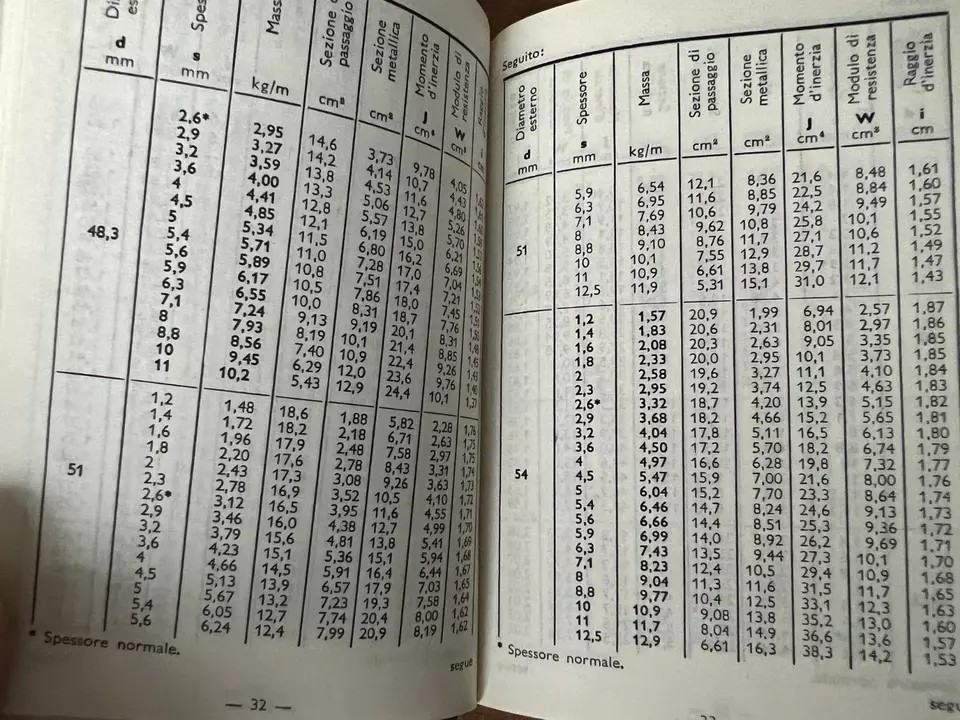 Massa Sezione passaggio Sezione metallica Momento d'inerzia Modulo di resistenza
d s J W
mm mm kg/m cm² cm² cm⁴ cm³
2,6* 2,95 14,6 3,73 9,78 4,05
2,9 3,27 14,2 4,14 10,7 4,43
3,2 3,59 13,8 4,53 11,6 4,80
3,6 4,00 13,3 5,06 12,7 5,26
4 4,41 12,8 5,57 13,8 5,70
4,5 4,85 12,1 6,19 15,0 6,21
5 5,34 11,5 6,80 16,2 6,69
48,3 5,4 5,71 11,0 7,28 17,0 7,04
5,6 5,89 10,8 7,51 17,4 7,21
5,9 6,17 10,5 7,86 18,0 7,45
6,3 6,55 10,0 8,31 18,7 7,76
7,1 7,24 9,13 9,19 20,1 8,31
8 7,93 8,19 10,1 21,4 8,85
8,8 8,56 7,40 10,9 22,4 9,26
10 9,45 6,29 12,0 23,6 9,76
11 10,2 5,43 12,9 24,4 10,1 1,37
1,2 1,48 18,6 1,88 5,82 2,28 1,76
1,4 1,72 18,2 2,18 6,71 2,63 1,75
1,6 1,96 17,9 2,48 7,58 2,97 1,75
1,8 2,20 17,6 2,78 8,43 3,31 1,74
51 2 2,43 17,3 3,08 9,26 3,63 1,73
2,3 2,78 16,9 3,52 10,5 4,10 1,72
2,6* 3,12 16,5 3,95 11,6 4,55 1,71
2,9 3,46 16,0 4,38 12,7 4,99 1,70
3,2 3,79 15,6 4,81 13,8 5,41 1,69
3,6 4,23 15,1 5,36 15,1 5,94 1,68
4 4,66 14,5 5,91 16,4 6,44 1,67
4,5 5,13 13,9 6,57 17,9 7,03 1,65
5 5,67 13,2 7,23 19,3 7,58 1,64
5,4 6,05 12,7 7,74 20,4 8,00 1,62
5,6 6,24 12,4 7,99 20,9 8,19 1,62
* Spessore normale.
segue
— 32 —
Seguito:
Diametro esterno Spessore Massa Sezione di passaggio Sezione metallica Momento d'inerzia Modulo di resistenza Raggio d'inerzia
d s J W i
mm mm kg/m cm² cm² cm⁴ cm³ cm
5,9 6,54 12,1 8,36 21,6 8,48 1,61
6,3 6,95 11,6 8,85 22,5 8,84 1,60
7,1 7,69 10,6 9,79 24,2 9,49 1,57
51 8 8,43 9,62 10,8 25,8 10,1 1,55
8,8 9,10 8,76 11,7 27,1 10,6 1,52
10 10,1 7,55 12,9 28,7 11,2 1,49
11 10,9 6,61 13,8 29,7 11,7 1,47
12,5 11,9 5,31 15,1 31,0 12,1 1,43
1,2 1,57 20,9 1,99 6,94 2,57 1,87
1,4 1,83 20,6 2,31 8,01 2,97 1,86
1,6 2,08 20,3 2,63 9,05 3,35 1,85
1,8 2,33 20,0 2,95 10,1 3,73 1,85
2 2,58 19,6 3,27 11,1 4,10 1,84
2,3 2,95 19,2 3,74 12,5 4,63 1,83
2,6* 3,32 18,7 4,20 13,9 5,15 1,82
2,9 3,68 18,2 4,66 15,2 5,65 1,81
3,2 4,04 17,8 5,11 16,5 6,13 1,80
3,6 4,50 17,2 5,70 18,2 6,74 1,79
4 4,97 16,6 6,28 19,8 7,32 1,77
54 4,5 5,47 15,9 7,00 21,6 8,00 1,76
5 6,04 15,2 7,70 23,3 8,64 1,74
5,4 6,46 14,7 8,24 24,6 9,13 1,73
5,6 6,66 14,4 8,51 25,3 9,36 1,72
5,9 6,99 14,0 8,92 26,2 9,69 1,71
6,3 7,43 13,5 9,44 27,3 10,1 1,70
7,1 8,23 12,4 10,5 29,4 10,9 1,68
8 9,04 11,3 11,6 31,5 11,7 1,65
8,8 9,77 10,4 12,5 33,1 12,3 1,63
10 10,9 9,08 13,8 35,2 13,0 1,60
11 11,7 8,04 14,9 36,6 13,6 1,57
12,5 12,9 6,61 16,3 38,3 14,2 1,53
* Spessore normale.